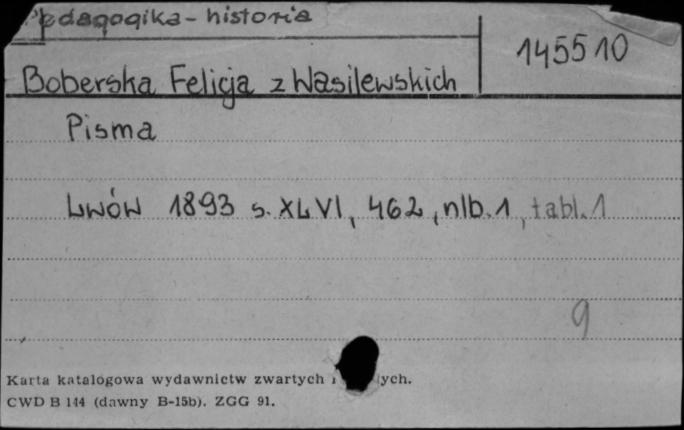 Pedagogika - historia
145510
Boberska Felicja z Wasilewskich
Pisma
Lwów 1893 s. XLVI, 462, nlb. 1, tabl. 1
9
Karta katalogowa wydawnictw zwartych
CWD B 144 (dawny B-15b). ZGG 91.